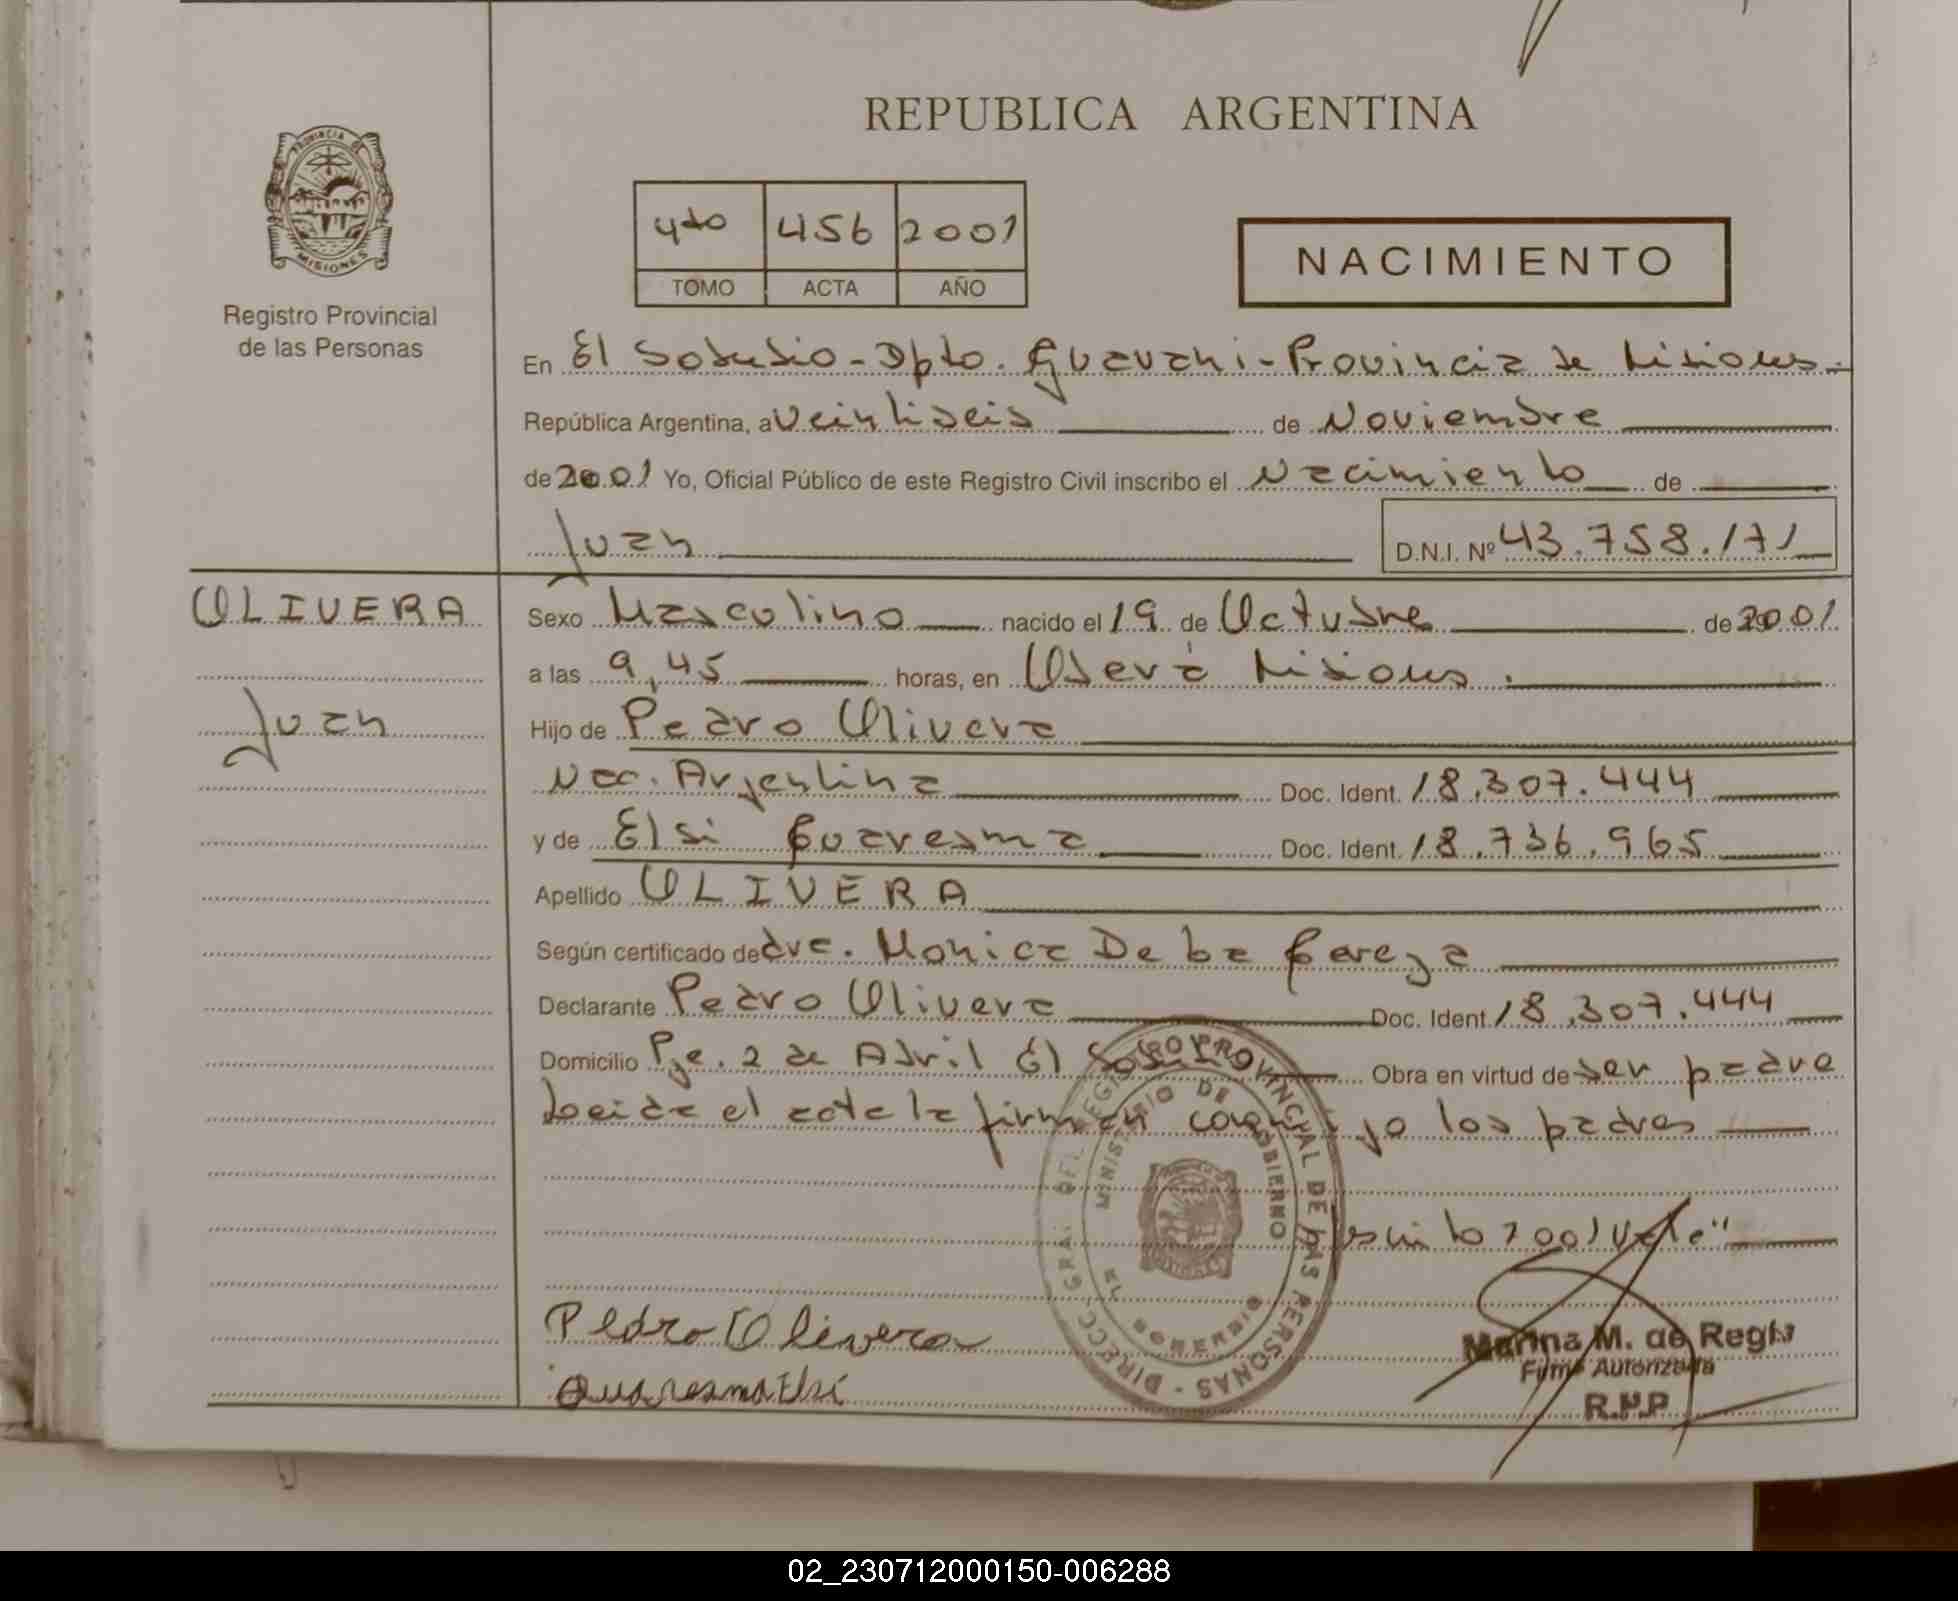 REPUBLICA ARGENTINA
PROVINCIA DE
MISIONES
Registro Provincial
de las Personas
4to 456 2001
TOMO ACTA AÑO
NACIMIENTO
En El Soberbio - Dpto. Guarani - Provincia de Misiones.
República Argentina, a Veintiseis de Noviembre
de 2001 Yo, Oficial Público de este Registro Civil inscribo el Nacimiento de
Juan D.N.I. Nº 43.758.171
OLIVERA
Juan
Sexo Masculino nacido el 19 de Octubre de 2001
a las 9,45 horas, en Oberá Misiones.
Hijo de Pedro Olivera
Nac. Argentina Doc. Ident. 18.307.444
y de Elsi Cuaresma Doc. Ident. 18.736.965
Apellido OLIVERA
Según certificado de dra. Monica De
Declarante Pedro Olivera Doc. Ident. 18.307.444
Domicilio Pje. 2 de Abril El Sob. Obra en virtud de ser padre
Leida el acta la firman conmigo los padres
2001 Vale"
Pedro Olivera
Quaresma Elsi
DIRECC. GRAL. DEL REGISTRO PROVINCIAL DE LAS PERSONAS
MINISTERIO DE GOBIERNO
EL SOBERBIO
Marina M. de Regis
Firma Autorizada
R.P.P
02_230712000150-006288